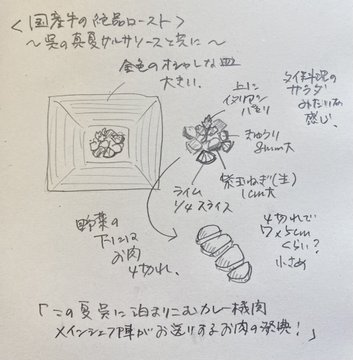 <国産牛の絶品ロースト>
〜呉の真夏サルサソースと共に〜
金色のオシャレな皿
大きい、
上に
イタリアン
パセリ
タイ料理の
サラダ
みたいな
感じ、
きゅうり
8mm大
紫玉ねぎ(生)
1cm大
ライム
1/4スライス
野菜の
下には
お肉
4切れ、
4切れで
7×5cm
くらい?
小さめ
「この夏呉に泊まりこむカレー機関
メインシェフ陣がお送りするお肉の祭典!」